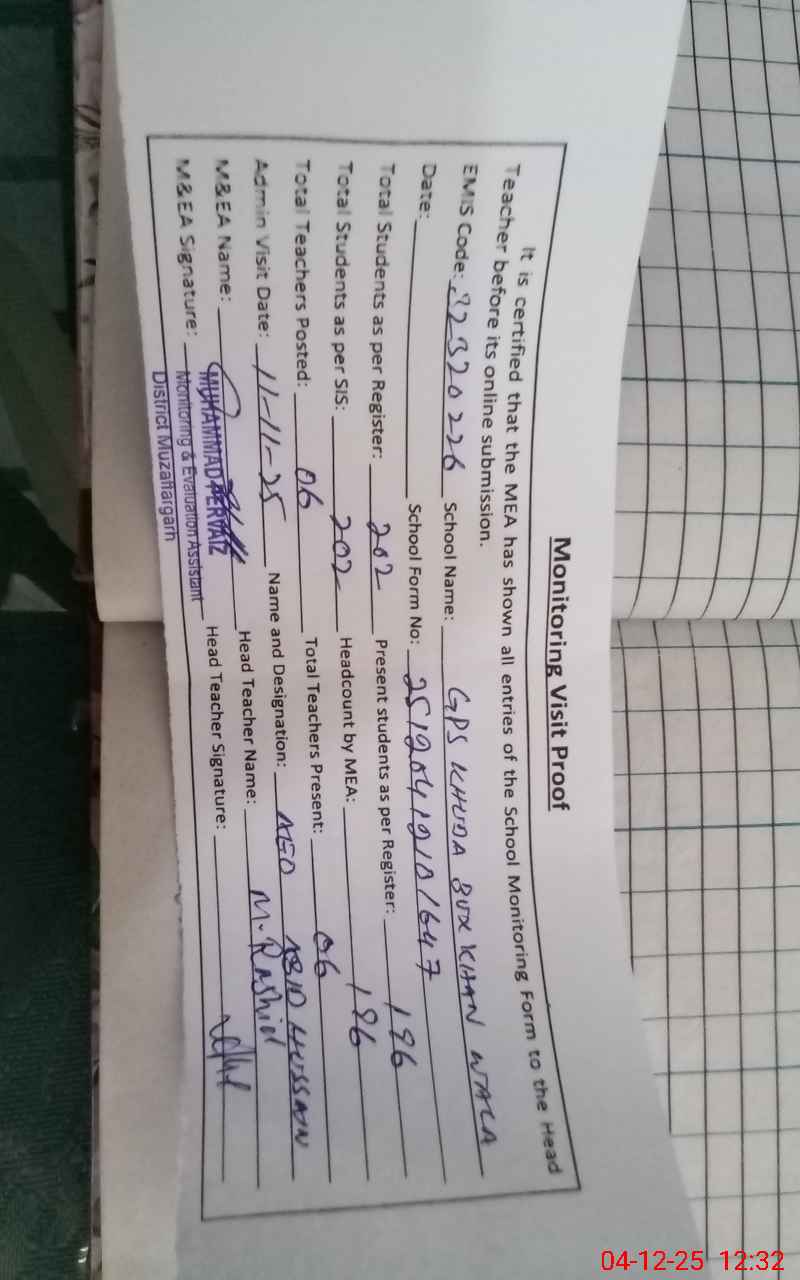 Monitoring Visit Proof
It is certified that the MEA has shown all entries of the School Monitoring Form to the Head
Teacher before its online submission.
EMIS Code: 32320226 School Name: GPS KHUDA BUX KHAN WALA
Date: School Form No: 25120419101647
Total Students as per Register: 202 Present students as per Register: 196
Total Students as per SIS: 202 Headcount by MEA: 196
Total Teachers Posted: 06 Total Teachers Present: 06
Admin Visit Date: 11-11-25 Name and Designation: AEO ABID HUSSAIN
M&EA Name: Head Teacher Name: M. Rashid
M&EA Signature: Head Teacher Signature:
MUHAMMAD PERVAIZ
Monitoring & Evaluation Assistant
District Muzaffargarh
04-12-25 12:32